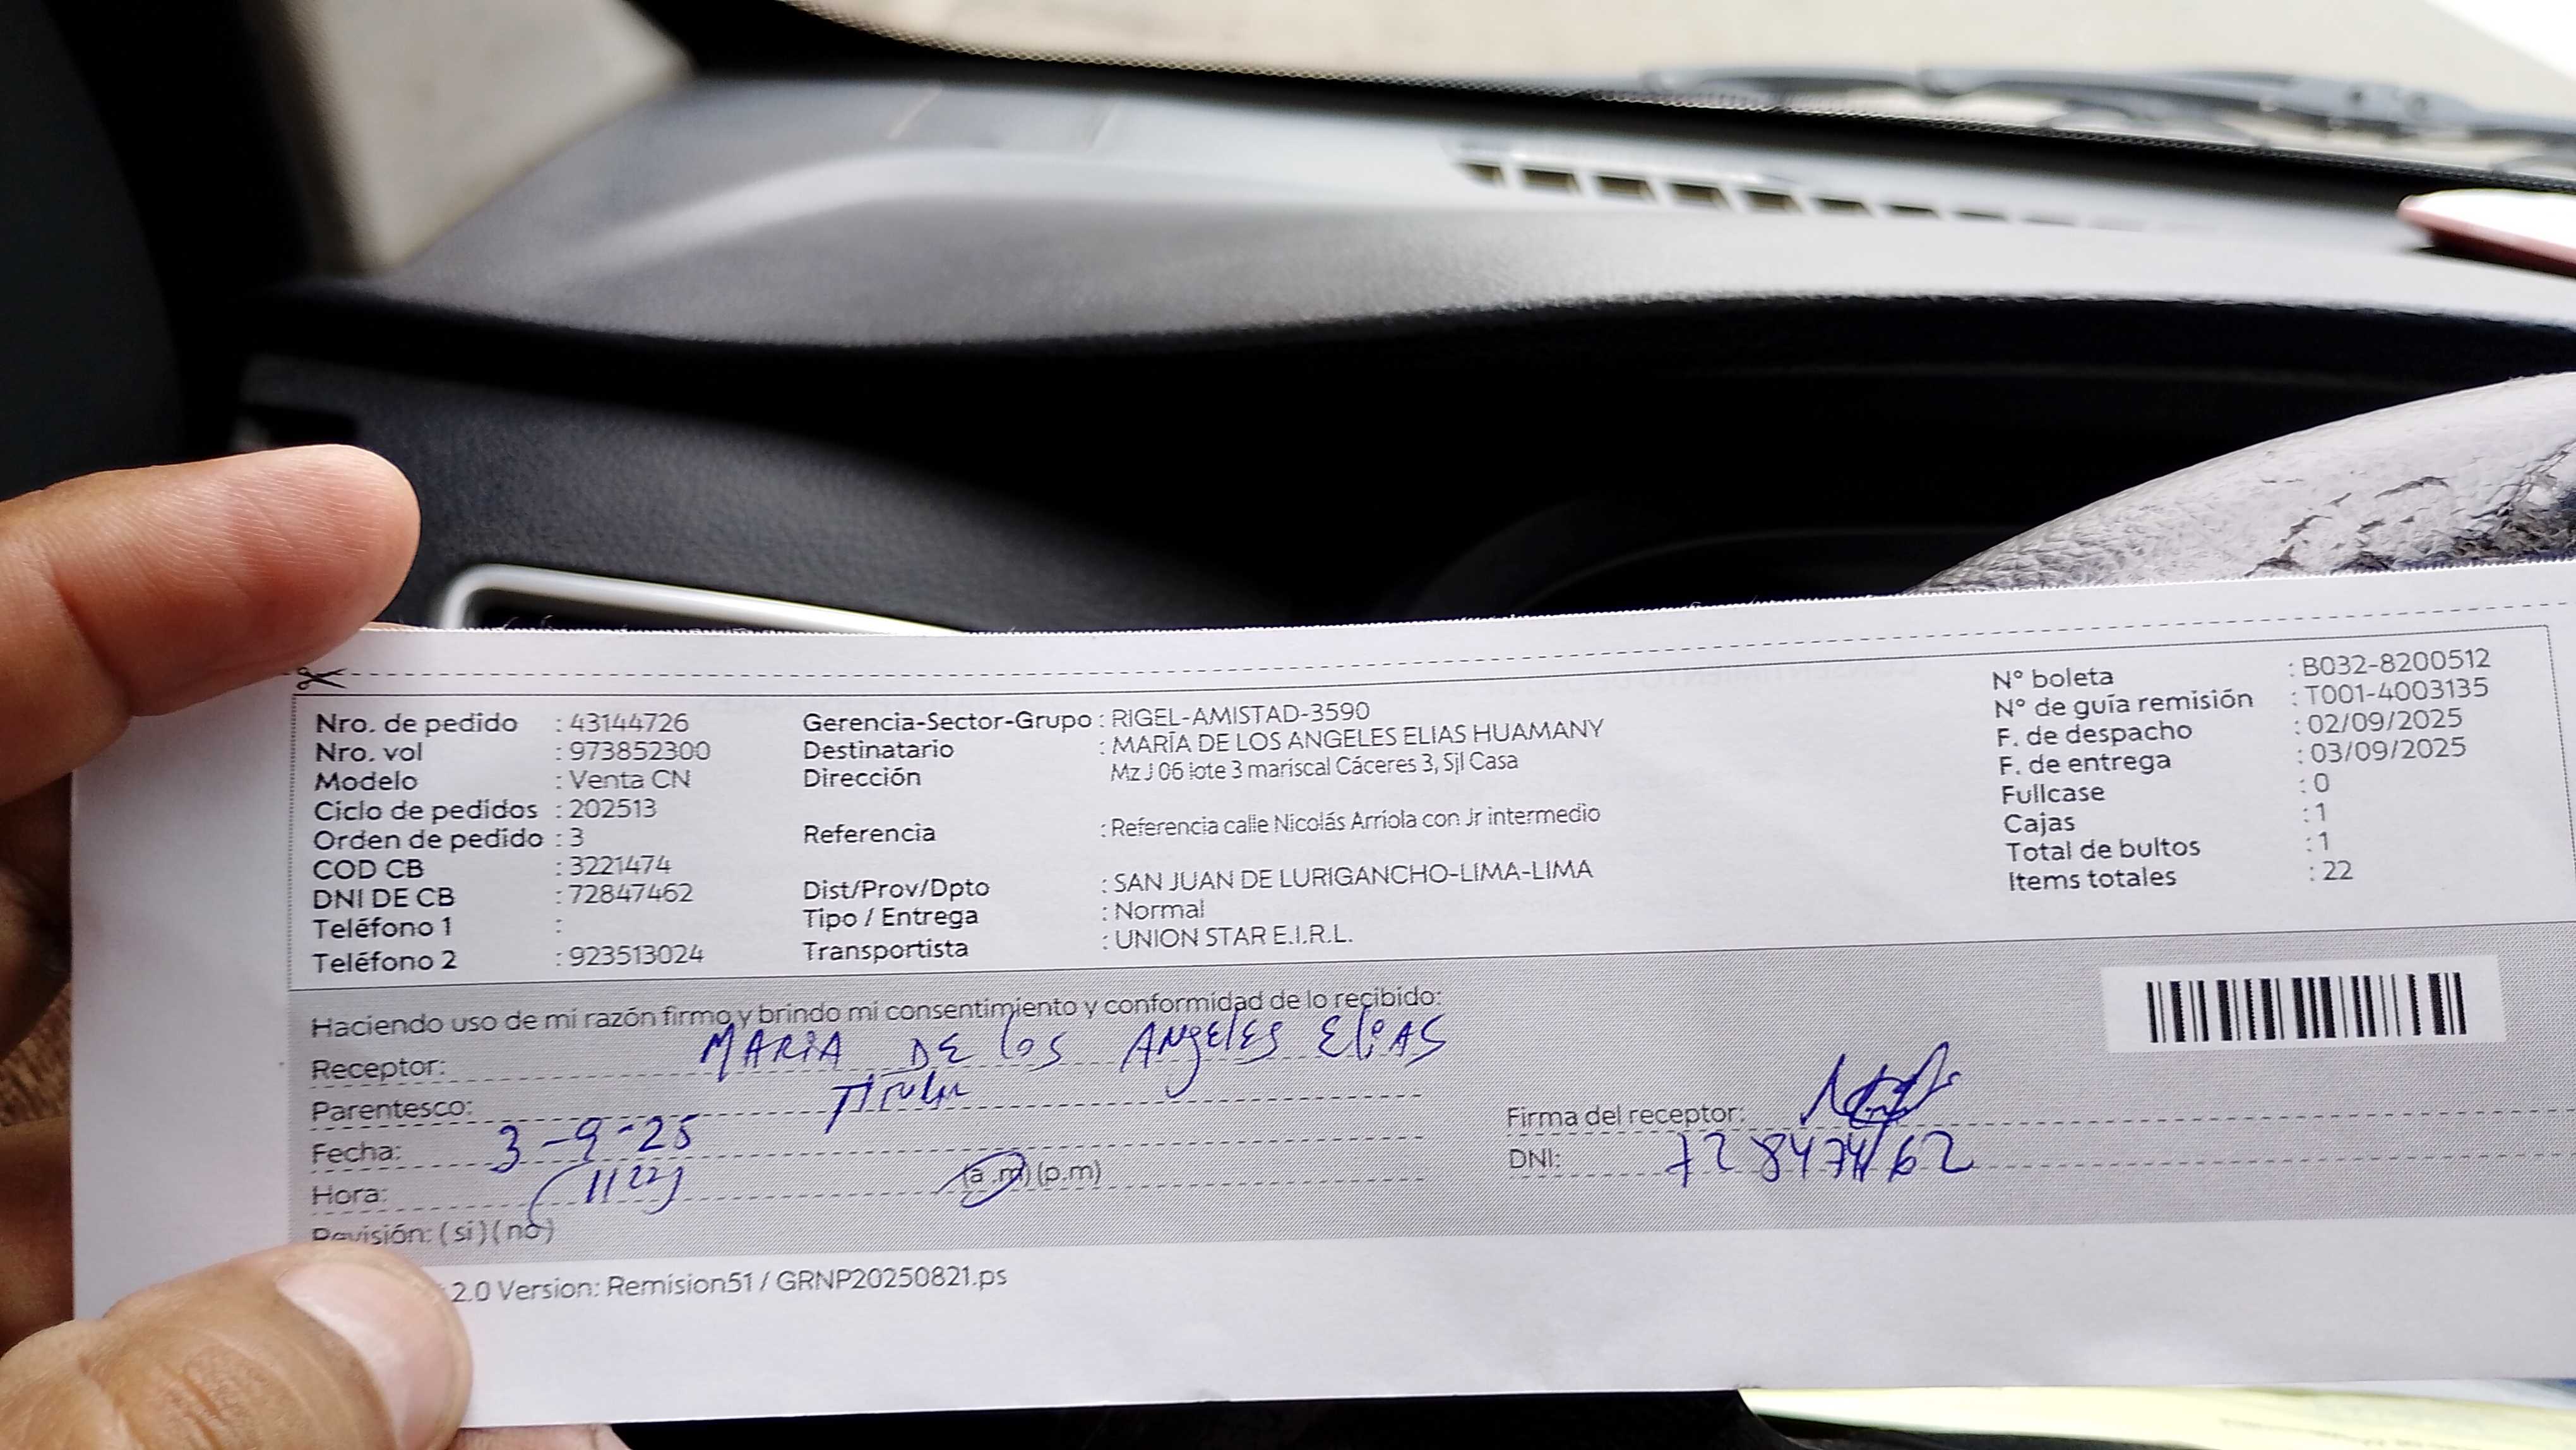 Nro. de pedido : 43144726
Nro. vol : 973852300
Modelo : Venta CN
Ciclo de pedidos : 202513
Orden de pedido : 3
COD CB : 3221474
DNI DE CB : 72847462
Teléfono 1 :
Teléfono 2 : 923513024
Gerencia-Sector-Grupo : RIGEL-AMISTAD-3590
Destinatario : MARÍA DE LOS ANGELES ELIAS HUAMANY
Dirección Mz J 06 lote 3 mariscal Cáceres 3, Sjl Casa
Referencia : Referencia calle Nicolás Arriola con Jr intermedio
Dist/Prov/Dpto : SAN JUAN DE LURIGANCHO-LIMA-LIMA
Tipo / Entrega : Normal
Transportista : UNION STAR E.I.R.L.
N° boleta : B032-8200512
N° de guía remisión : T001-4003135
F. de despacho : 02/09/2025
F. de entrega : 03/09/2025
Fullcase : 0
Cajas : 1
Total de bultos : 1
Items totales : 22
Haciendo uso de mi razón firmo y brindo mi consentimiento y conformidad de lo recibido:
Receptor: MARIA DE los ANgelES EliAS
Parentesco: Titular
Fecha: 3-9-25
Hora: (1122) (a.m)(p.m)
Revisión: (si)(no)
Firma del receptor:
DNI: 72847462
2.0 Version: Remision51 / GRNP20250821.ps